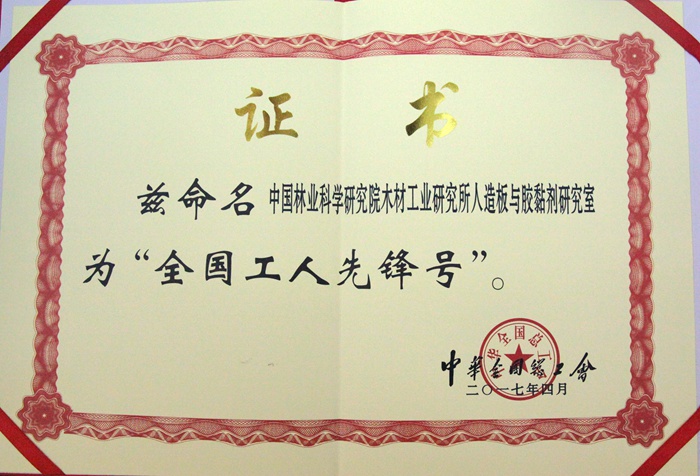 证书
兹命名中国林业科学研究院木材工业研究所人造板与胶黏剂研究室
为“全国工人先锋号”。
中华全国总工
中華全国総工會
二〇一七年四月